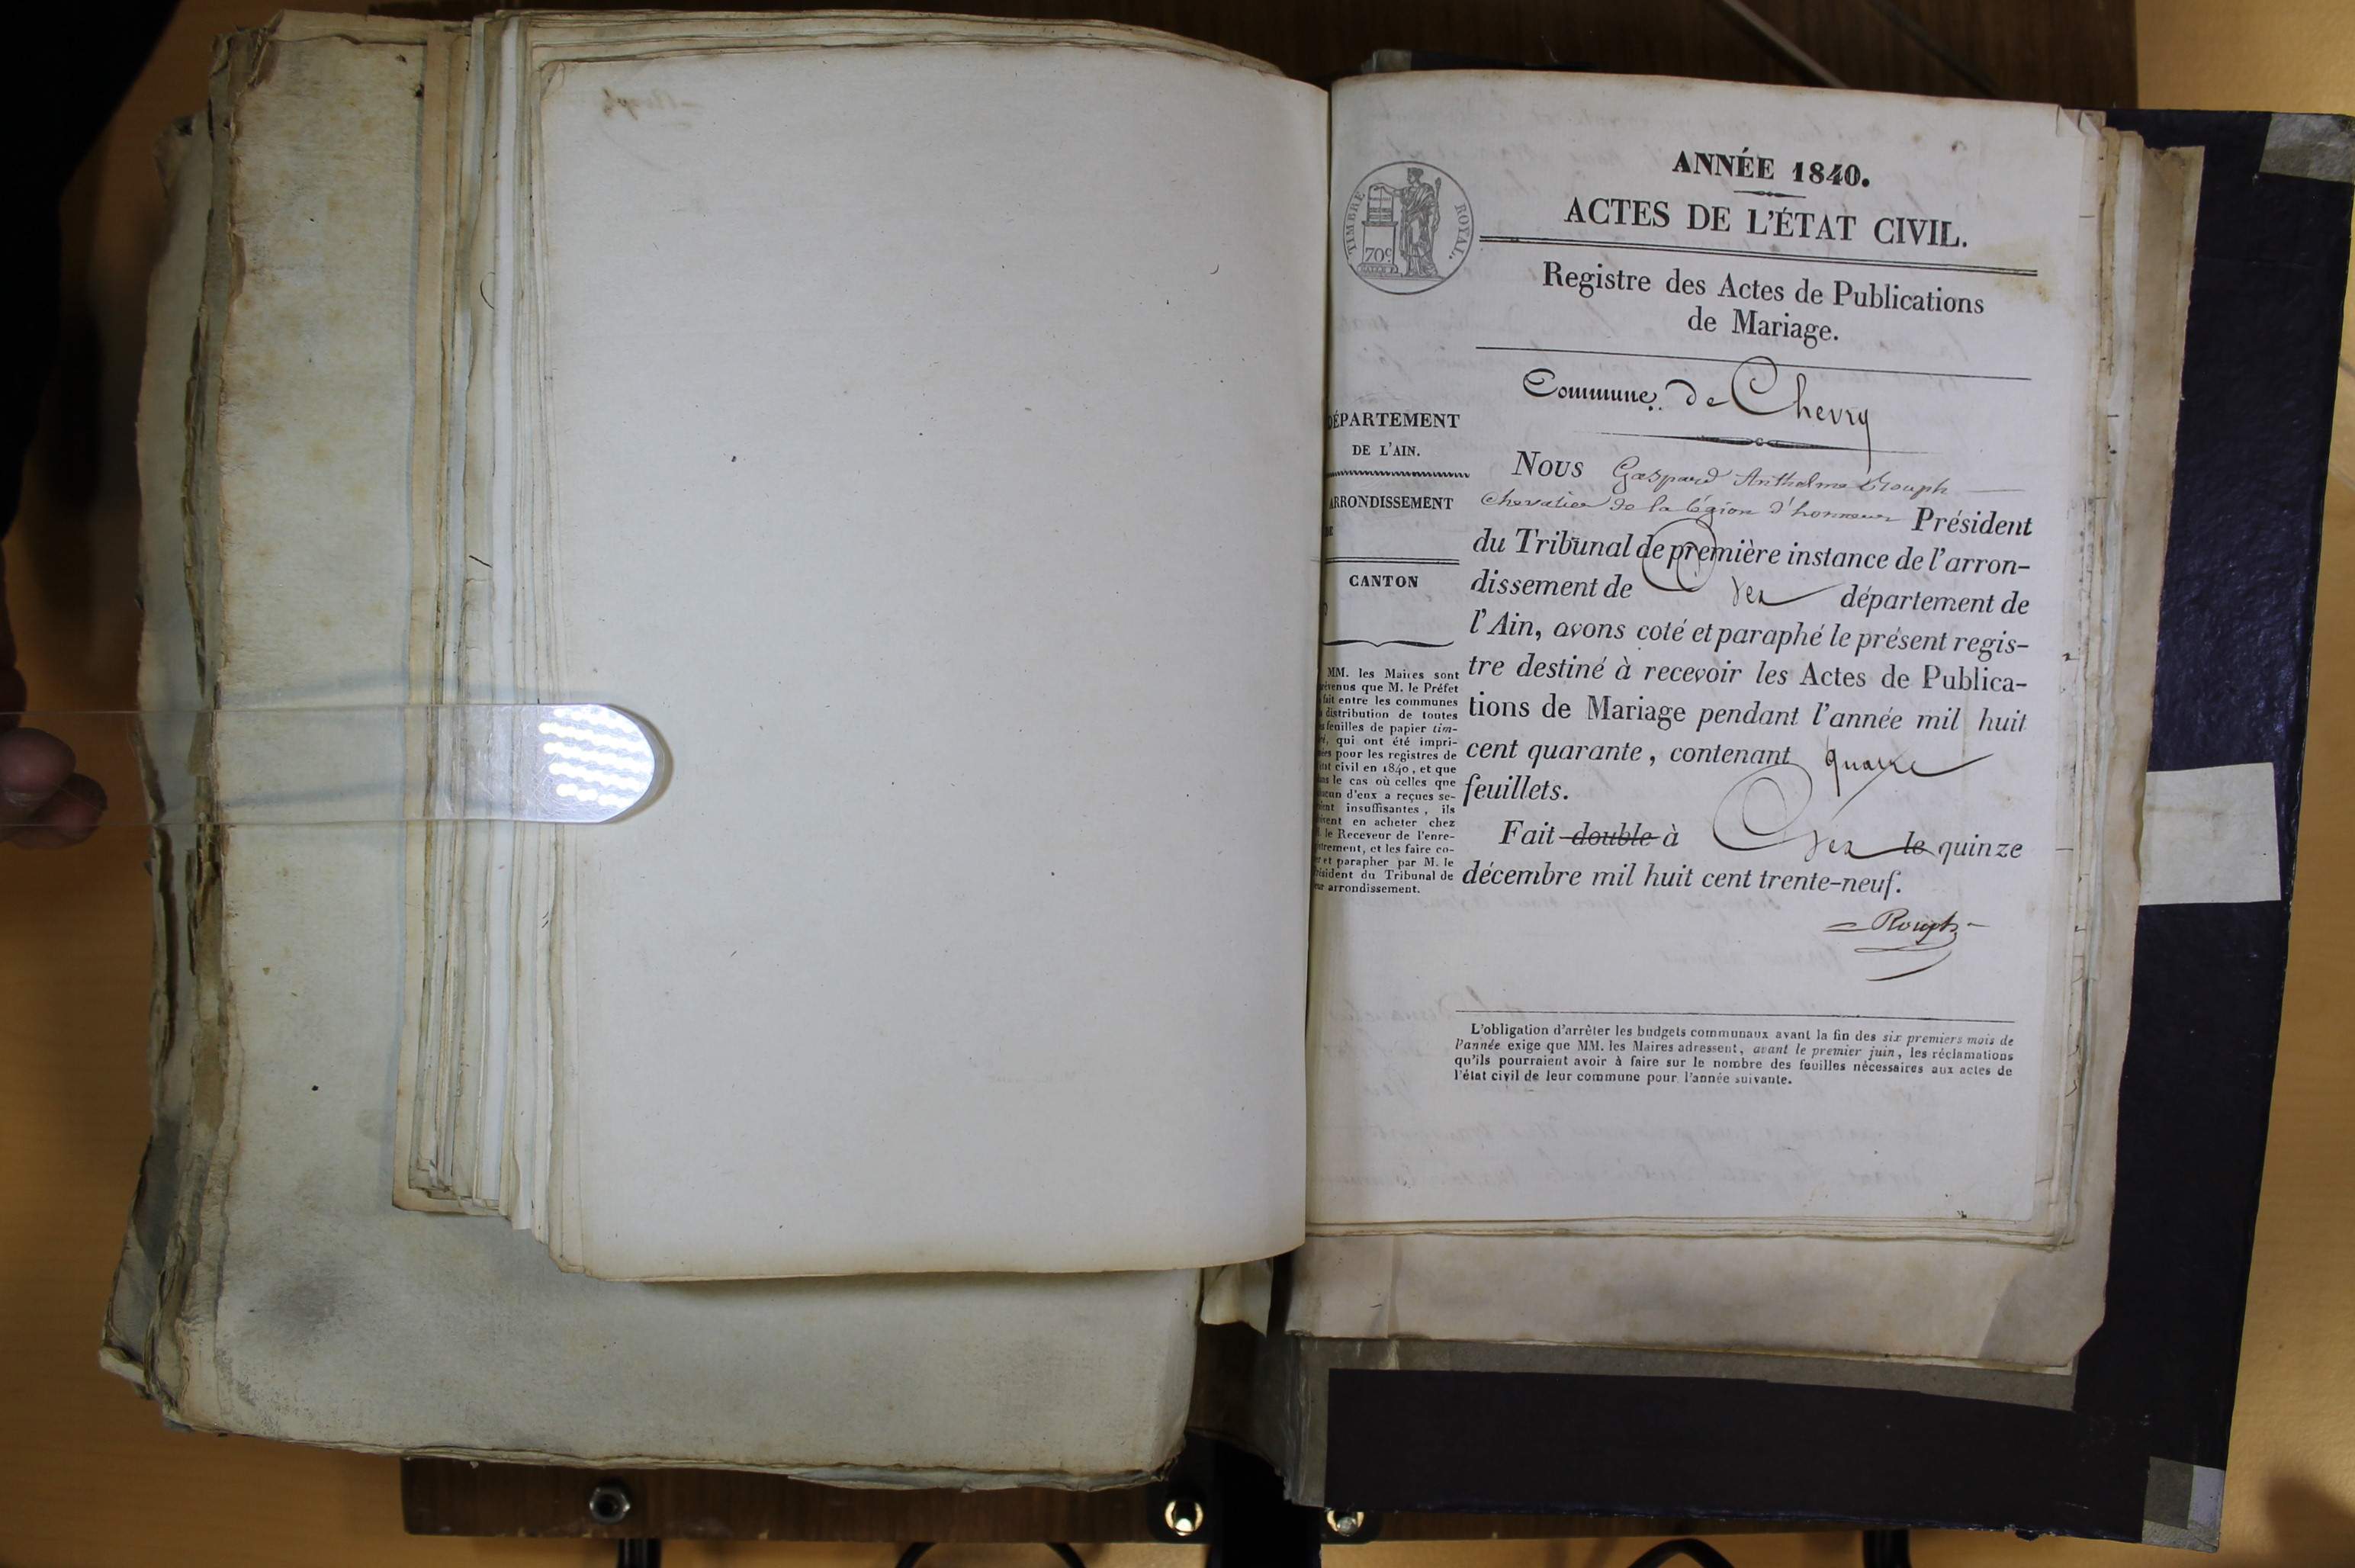 ANNÉE 1840.
ACTES DE L'ÉTAT CIVIL.
TIMBRE ROYAL.
70c
Registre des Actes de Publications
de Mariage.
Commune de Chevry
DÉPARTEMENT
DE L'AIN.
ARRONDISSEMENT
CANTON
MM. les Maires sont
prévenus que M. le Préfet
fait entre les communes
distribution de toutes
feuilles de papier tim-
qui ont été impri-
pour les registres de
civil en 1840, et que
le cas où celles que
d'eux a reçues se-
insuffisantes, ils
en acheter chez
le Receveur de l'enre-
et les faire co-
et parapher par M. le
Président du Tribunal de
arrondissement.
Nous Gaspard Anthelme Rouph
Chevalier de la Légion d'honneur Président
du Tribunal de première instance de l'arron-
dissement de Gex département de
l'Ain, avons coté et paraphé le présent regis-
tre destiné à recevoir les Actes de Publica-
tions de Mariage pendant l'année mil huit
cent quarante, contenant quatre
feuillets.
Fait double à Gex le quinze
décembre mil huit cent trente-neuf.
Rouph
L'obligation d'arrêter les budgets communaux avant la fin des six premiers mois de
l'année exige que MM. les Maires adressent, avant le premier juin, les réclamations
qu'ils pourraient avoir à faire sur le nombre des feuilles nécessaires aux actes de
l'état civil de leur commune pour l'année suivante.